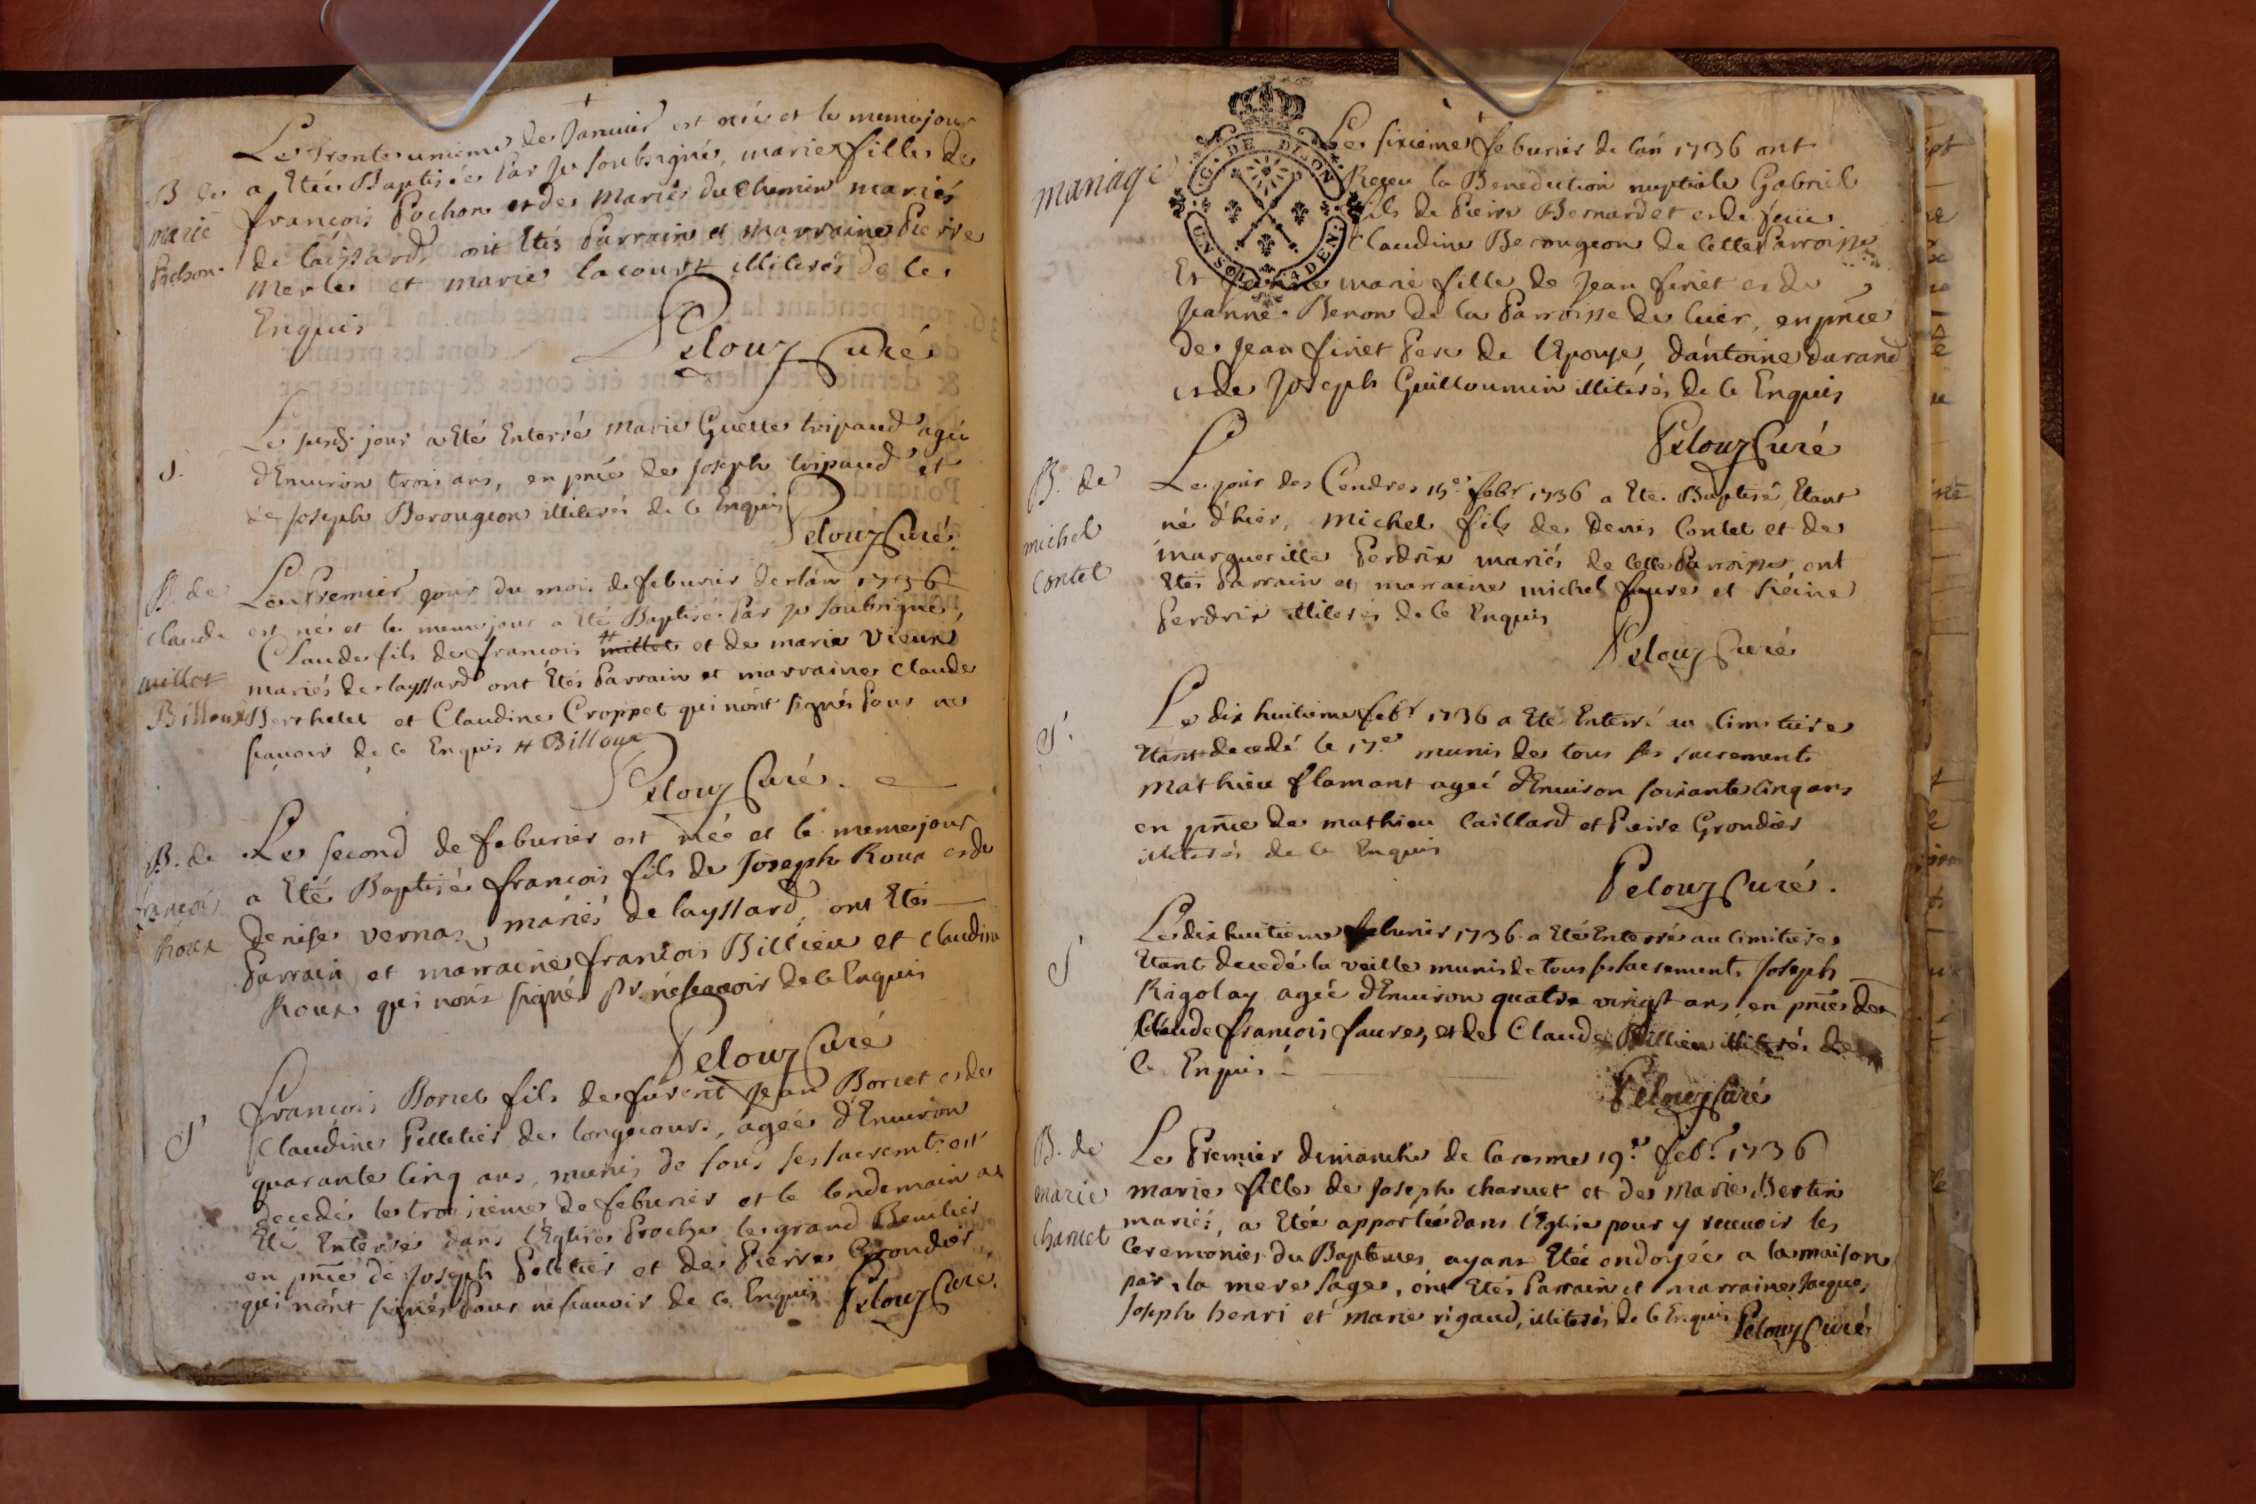 Le trente unieme de Janvier est née et le meme jour
B de
marie
Pochon
a Etée Baptisée Par Je soubsigné, marie fille de
françois Pochon et de Marie du Chemin mariés
de laissard, ont Etés Parrain et marraine Pierre
Merle et marie lacourt illiterés de ce
Enquis
Pelouz Curé
S.
Le susd. jour a Eté Enterré Marie Guette tripaud agée
d'Environ trois ans, en pnce de Joseph tripaud et
de Joseph Berougeon illiterés de ce Enquis
Pelouz Curé
B. de
claude
millet
Billoux
Le Premier jour du mois de feburier de l'an 1736
est né et le meme jour a Eté Baptisé Par Je soubsigné
Claude fils de françois # millet et de marie Vieux
mariés de layssard ont Etés Parrain et marraine claude
Berthelet et Claudine Croppet qui n'ont signés Pour ne
scavoir de ce Enquis # Billoux
Pelouz Curé.
B. de
françois
Roux
Le second de feburier est née et le meme jour
a Eté Baptisé françois fils de Joseph Roux et de
denise vernaz mariés de layssard, ont Etés
Parrain et marraine françois Billieu et claudine
Roux qui n'ont signés Pr. ne scavoir de ce Enquis
Pelouz Curé
S
françois Borret fils de furent Jean Borret et de
Claudine Pelletier de longecour, agée d'Environ
quarante Cinq ans, munis de tous ses sacremts. est
decedé le troisieme de feburier et le lendemain a
Eté Enterré dans l'Eglise Proche le grand Benitier
en pnce de Joseph Peletier et de Pierre Grondier
qui n'ont signés Pour ne scavoir de ce Enquis Pelouz Curé.
mariage
C. DE DIJON
UN SOL 4 DEN.
Le sixieme feburier de l'an 1736 ont
Receu la Benediction nuptiale Gabriel
fils de Pierre Bernardet et de feüe
Claudine Berougeon de cette Parroisse
Et Jeanne marie fille de Jean finet et de
Jeanne Benon de la Parroisse de luier, en pnce
de Jean finet Pere de l'Epouse, d'antoine durand
et de Joseph Guilloumin illiterés de ce Enquis
Pelouz Curé
B. de
michel
Contet
Le jour des Cendres 15e. febr. 1736 a Eté Baptisé, Etant
né d'hier, Michel fils de Denis Contet et de
marguerite Perdrix mariés de cette Parroisse, ont
Etés Parrain et marraine michel faure et Reine
Perdrix illiterés de ce Enquis
Pelouz Curé
S.
Le dix huitieme febr. 1736 a Eté Enterré au Cimetiere
Etant decedé le 17e. munis de tous ses sacrements
Mathieu flamant agée d'Environ soixante Cinq ans
en pnce de mathieu Caillard et Peire Grondier
illiterés de ce Enquis
Pelouz Curé.
S
Le dix huitieme feburier 1736 a Eté Enterré au Cimitiere
Etant decedé la veille munis de tous ses sacrements Joseph
Rigolay agée d'Environ quatre vingt ans, en pnce de
Claude françois faure, et de Claude Billieu illiterés de
ce Enquis
Pelouz Curé
B. de
marie
charuet
Le Premier dimanche de Caresme 19e. feb. 1736
marie fille de Joseph charuet et de Marie Bertin
mariés, a Etée apportée dans l'Eglise pour y recevoir les
Ceremonies du Bapteme, ayant Etée ondoyée a la maison
par la mere sage, ont Etés Parrain et marraine Jacque
Joseph henri et marie rigaud, illiterés de ce Enquis Pelouz Curé